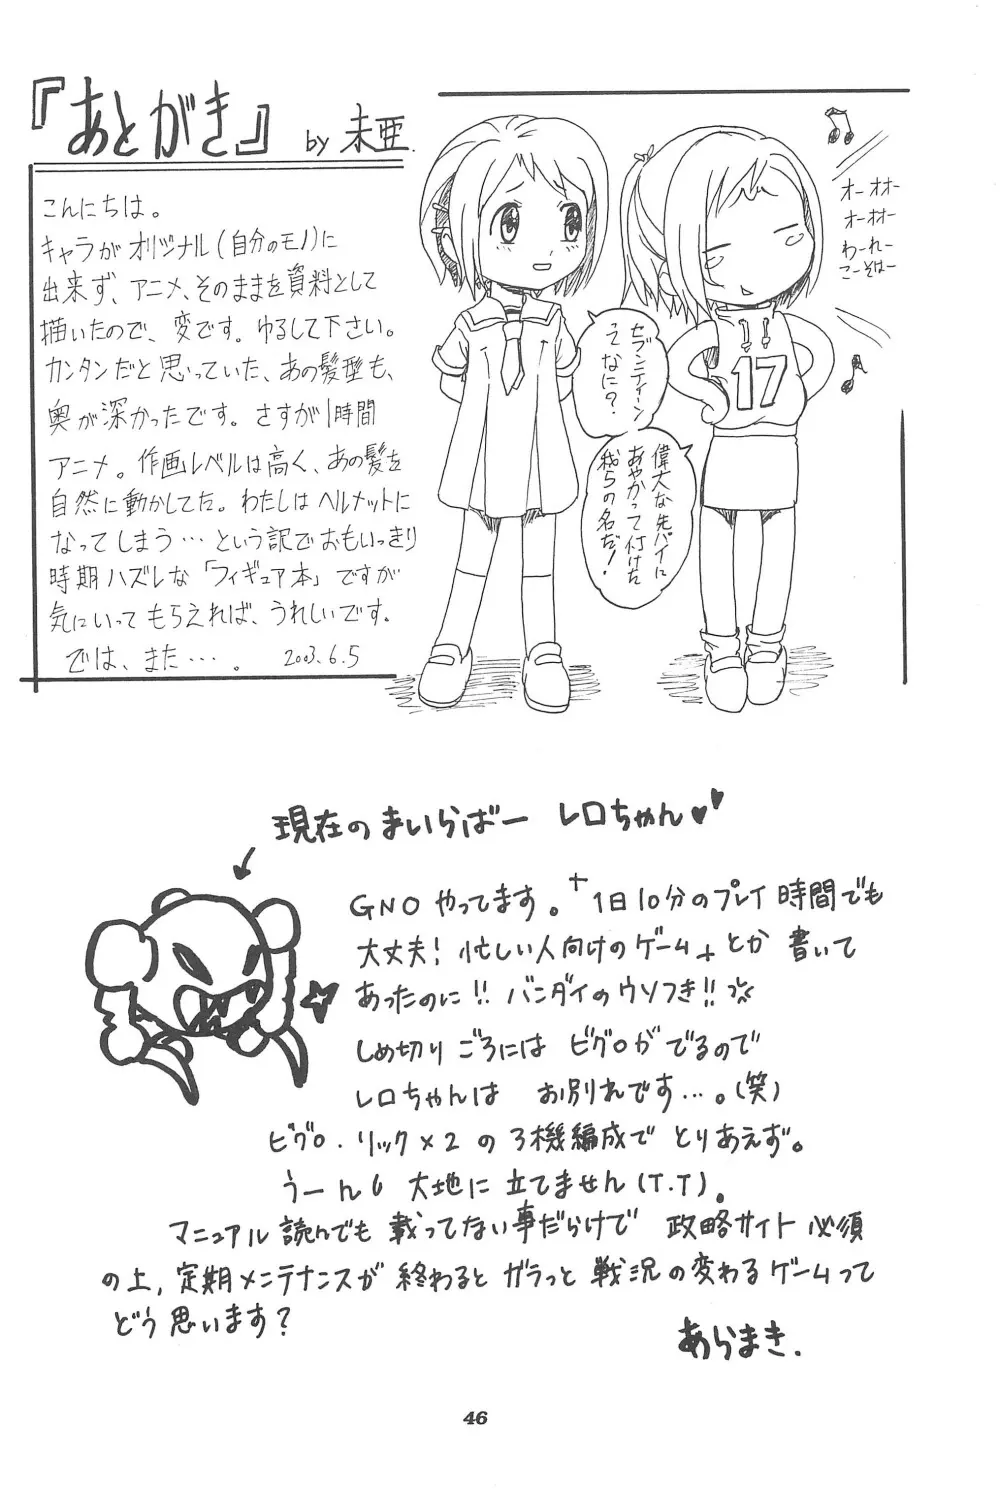 『あとがき』 by 未亜.
こんにちは。
キャラがオリジナル(自分のモノ)に
出来ず、アニメ、そのままを資料として
描いたので、変です。ゆるして下さい。
カンタンだと思っていた、あの髪型も、
奥が深かったです。さすが1時間
アニメ。作画レベルは高く、あの髪を
自然に動かしてた。わたしはヘルメットに
なってしまう…という訳でおもいっきり
時期ハズレな「フィギュア本」ですが
気にいってもらえれば、うれしいです.
では、また…. 2003.6.5
オーオオー
オーオオー
わーれー
こーそはー
セブンティーン
てなに?
偉大な先パイに
あやかって付けた
我らの名だ!
17
現在のまいらばー レロちゃん♥♥
GNOやってます。+1日10分のプレイ時間でも
大丈夫!忙しい人向けのゲーム+とか 書いて
あったのに!!バンダイのウソつき!!
しめ切りごろには ビグロがでるので
レロちゃんは お別れです…。(笑)
ビグロ.リック×2の3機編成で とりあえず。
うーん 大地に立てません(T.T)。
マニュアル読んでも 載ってない事だらけで 政略サイト必須
の上,定期メンテナンスが 終わると ガラっと 戦況の変わるゲームって
どう思います?
あらまき.
46